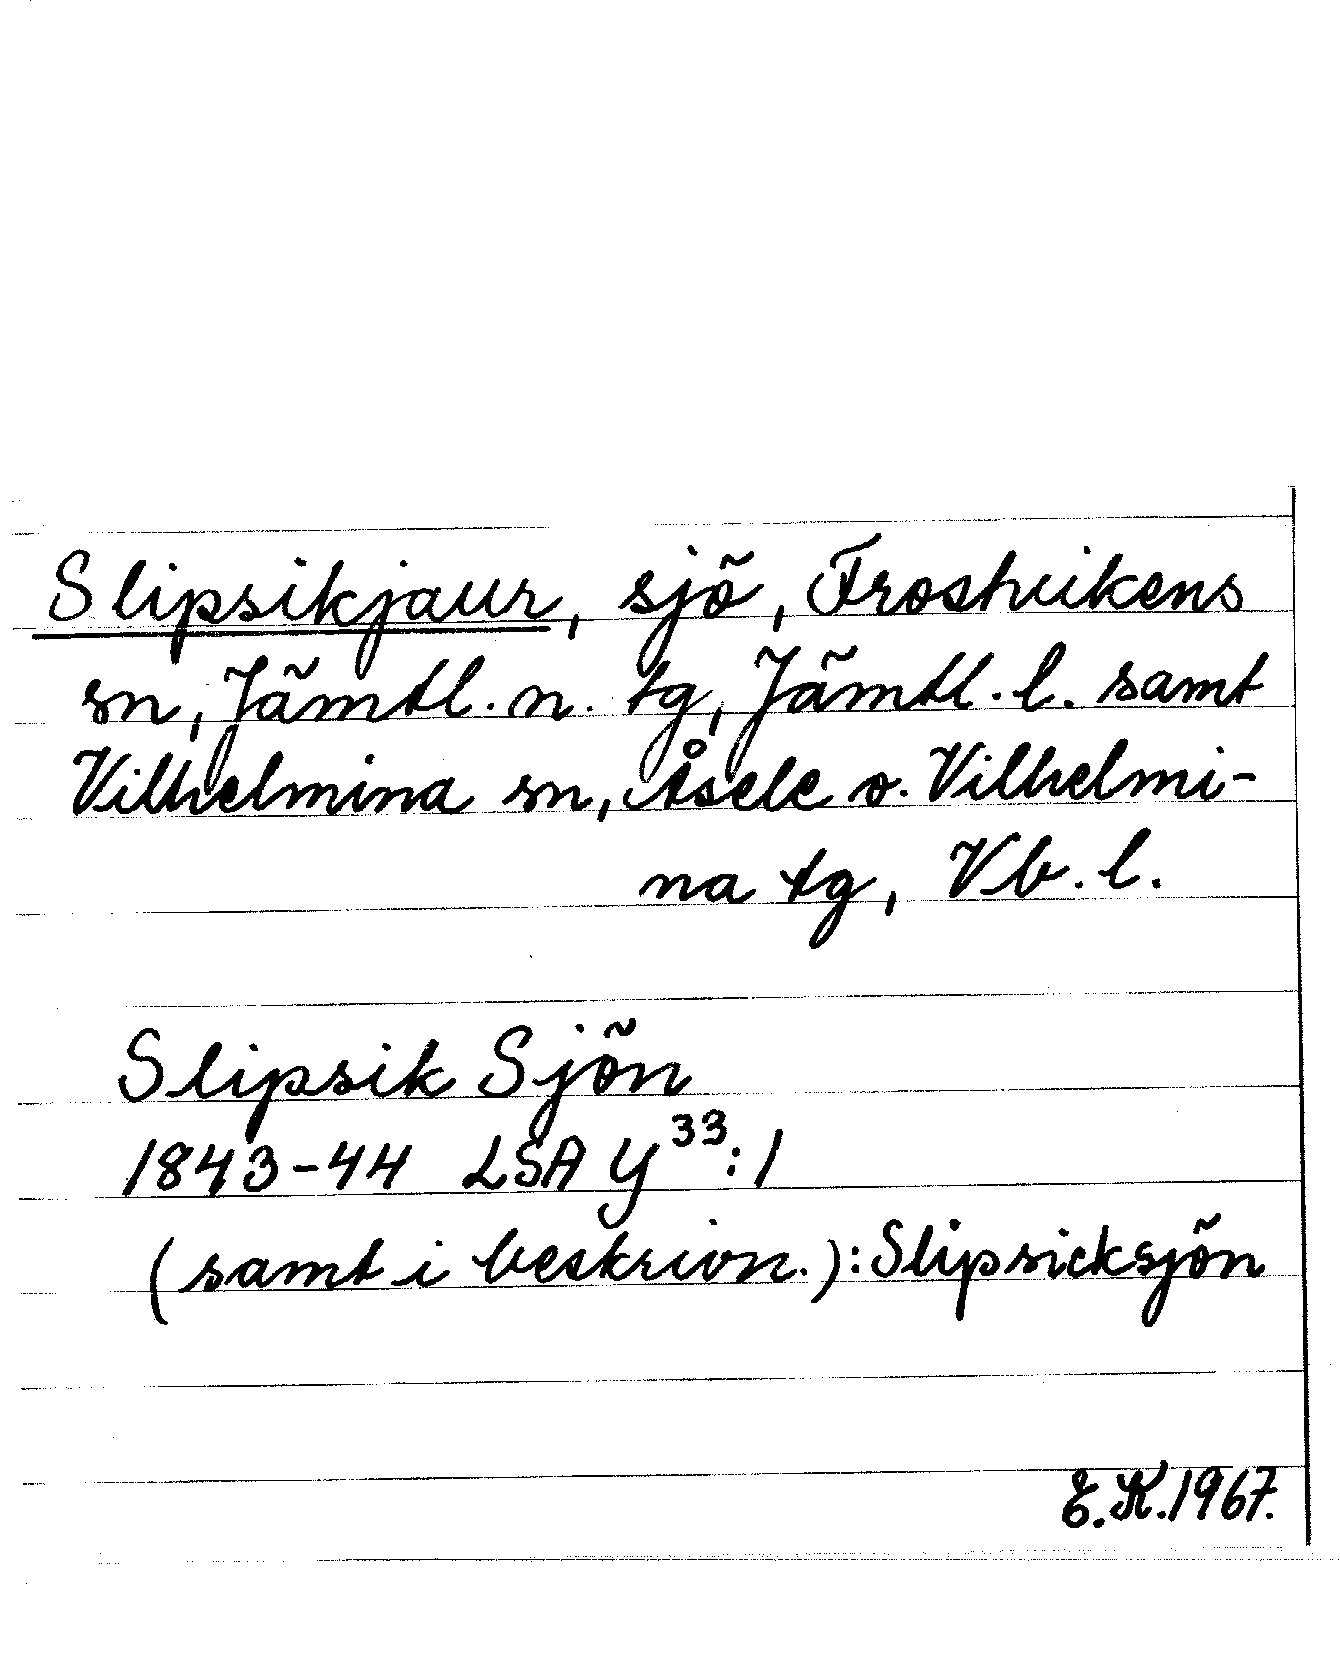 Slipsikjaur, sjö, Frostvikens
sn, Jämtl. n. tg, Jämtl. l. samt
Vilhelmina sn, Åsele o. Vilhelmi-
na tg, Vb. l.
Slipsik Sjön
1843-44 LSA Y³³:1
(samt i beskrivn.): Slipsicksjön
E.K. 1967.